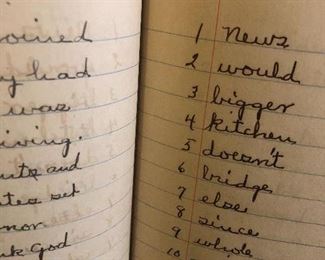 joined
had
was
iving.
and
set
nor
God
1 News
2 would
3 bigger
4 kitchen
5 doesn't
6 bridge
7 else
8 since
9 whole
10